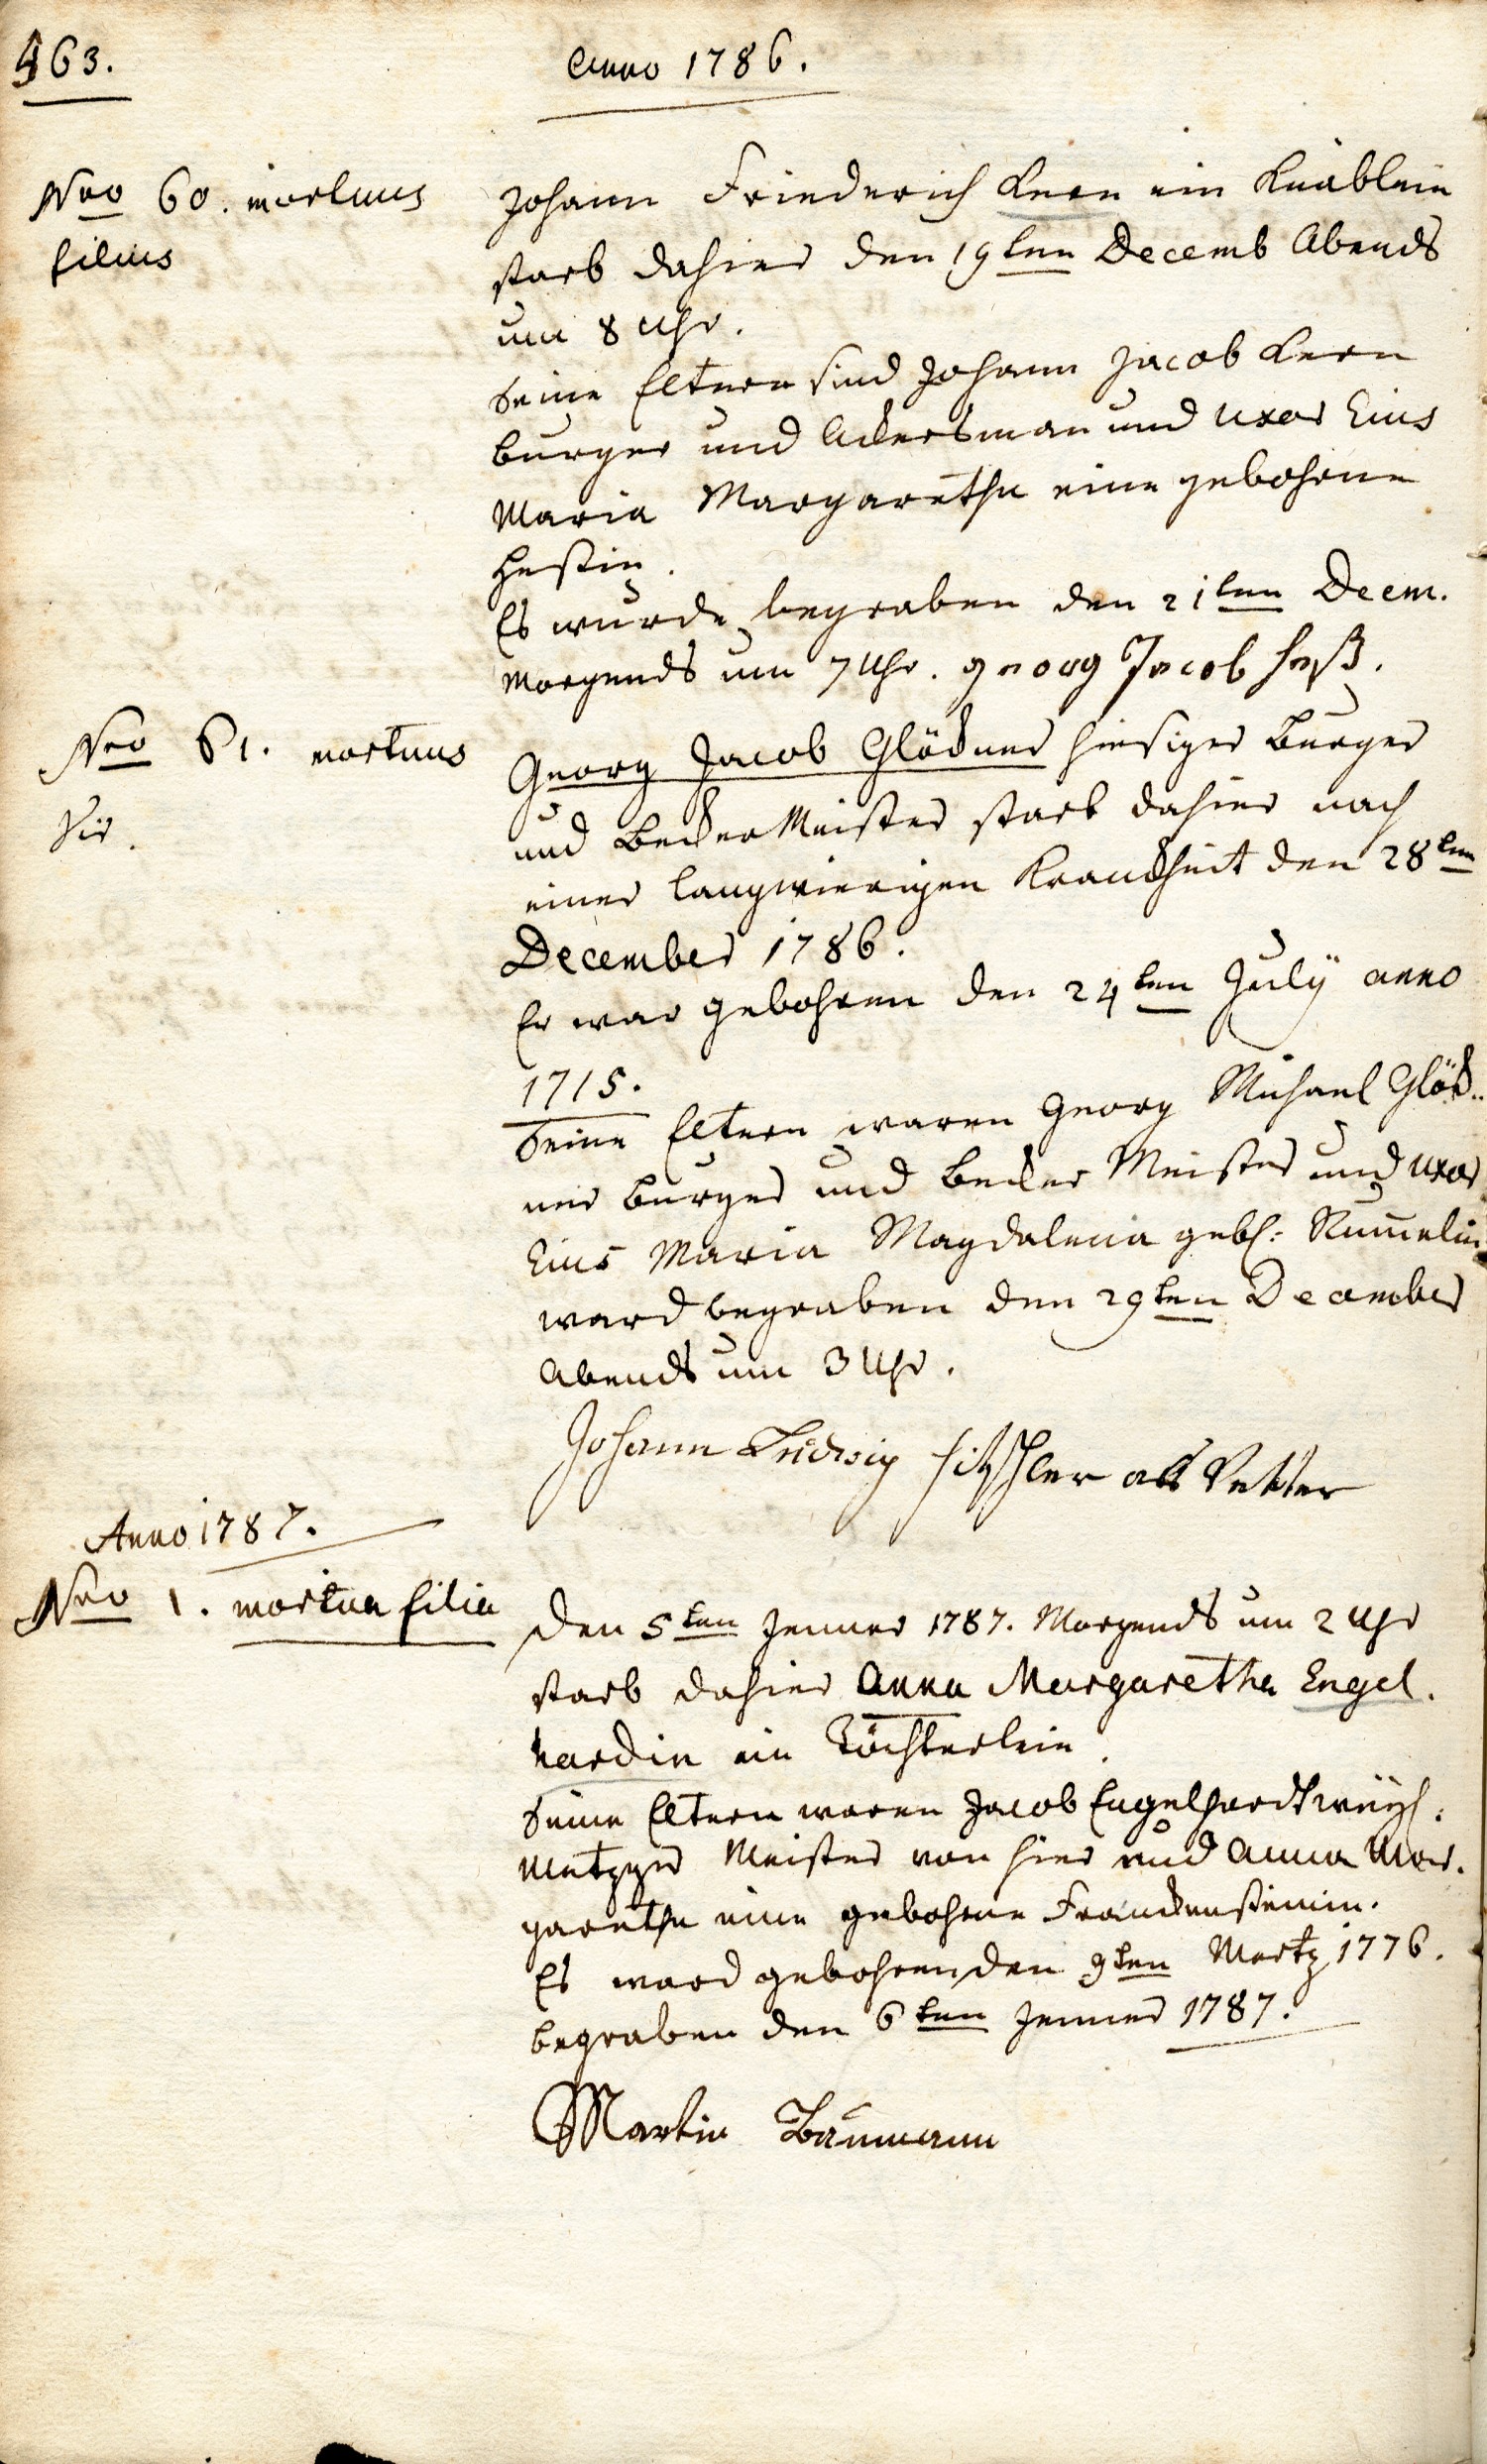 463.
Anno 1786.
Nro 60. mortuus
filius
Johann Friederich Kern ein Knäblein
starb dahier den 19ten Decemb Abends
um 8 Uhr.
Seine Eltern sind Johann Jacob Kern
burger und Ackersman und uxor Eius
Maria Margaretha eine gebohrne
Heßin.
Es wurde begraben den 21ten Decm.
Morgends um 7 Uhr. georg Jacob Heß.
Nro 61. mortuus
Vir.
Georg Jacob Glöckner hiesiger Burger
und Becker Meister starb dahier nach
einer langwierigen Kranckheit den 28ten
December 1786.
Er war gebohren den 24ten July anno
1715.
Seine Eltern waren Georg Michael Glöck..
ner burger und Becker Meister und uxor
Eius Maria Magdalena gebh: Rum̄elin
ward begraben den 29ten December
Abends um 3 Uhr.
Johann Ludwig als Vetter
Anno 1787.
Nro 1. mortua filia
Den 5ten Jenner 1787. Morgends um 2 Uhr
starb dahier Anna Margaretha Engel.
hardin ein Töchterlein.
Seine Eltern waren Jacob Engelhardt
Metzger Meister von hier und Anna Mar.
garetha eine gebohrne Franckensteinin.
Es ward gebohren den 9ten Mertz 1776.
begraben den 6ten Jenner 1787.
Martin Baumann